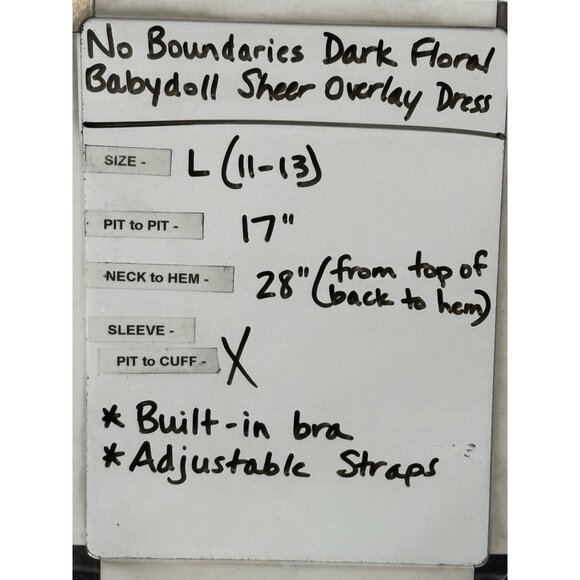 No Boundaries Dark Floral
Babydoll Sheer Overlay Dress
SIZE - L (11-13)
PIT to PIT - 17"
NECK to HEM - 28" (from top of
back to hem)
SLEEVE -
PIT to CUFF - X
* Built-in bra
* Adjustable Straps